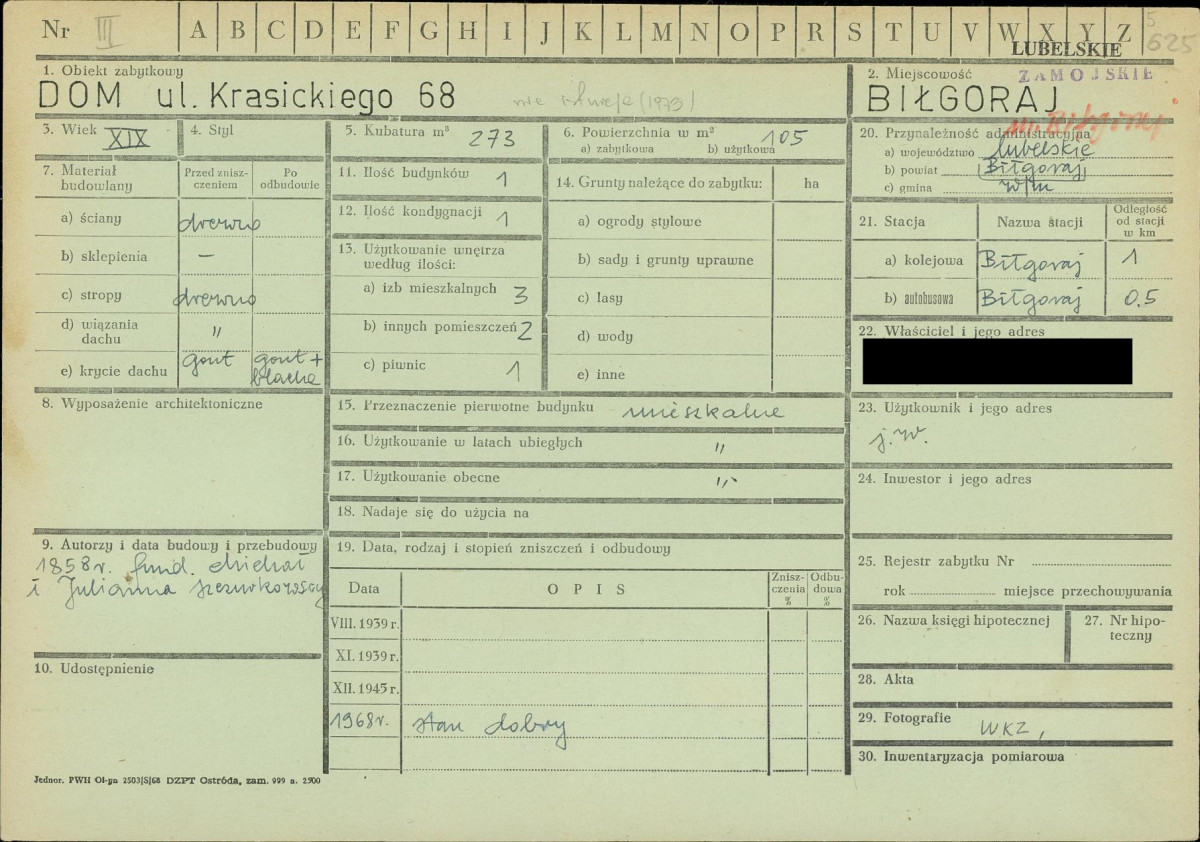 Nr III A B C D E F G H I J K L M N O P R S T U V W X Y Z 5
625
LUBELSKIE
1. Obiekt zabytkowy
DOM ul. Krasickiego 68
nie istnieje (1973)
2. Miejscowość
ZAMOJSKIE
BIŁGORAJ
m. Biłgoraj
3. Wiek XIX
4. Styl
5. Kubatura m³ 273
6. Powierzchnia w m² 105
a) zabytkowa b) użytkowa
7. Materiał budowlany
Przed zniszczeniem
Po odbudowie
a) ściany drewno
b) sklepienia –
c) stropy drewno
d) wiązania dachu "
e) krycie dachu gont gont + blacha
8. Wyposażenie architektoniczne
9. Autorzy i data budowy i przebudowy
1858 r. fund. Michał
i Julianna
10. Udostępnienie
11. Ilość budynków 1
12. Ilość kondygnacji 1
13. Użytkowanie wnętrza według ilości:
a) izb mieszkalnych 3
b) innych pomieszczeń 2
c) piwnic 1
14. Grunty należące do zabytku: ha
a) ogrody stylowe
b) sady i grunty uprawne
c) lasy
d) wody
e) inne
15. Przeznaczenie pierwotne budynku mieszkalne
16. Użytkowanie w latach ubiegłych "
17. Użytkowanie obecne "
18. Nadaje się do użycia na
19. Data, rodzaj i stopień zniszczeń i odbudowy
Data
OPIS
Zniszczenia %
Odbudowa %
VIII. 1939 r.
XI. 1939 r.
XII. 1945 r.
1968 r. stan dobry
20. Przynależność administracyjna
a) województwo lubelskie
b) powiat Biłgoraj
c) gmina w/m
21. Stacja
Nazwa stacji
Odległość od stacji w km
a) kolejowa Biłgoraj 1
b) autobusowa Biłgoraj 0.5
22. Właściciel i jego adres
23. Użytkownik i jego adres
j.w.
24. Inwestor i jego adres
25. Rejestr zabytku Nr
rok miejsce przechowywania
26. Nazwa księgi hipotecznej
27. Nr hipoteczny
28. Akta
29. Fotografie WKZ,
30. Inwentaryzacja pomiarowa
Jednor. PWH Ol-yn 2503/S/68 DZPT Ostróda, zam. 999 a. 2500